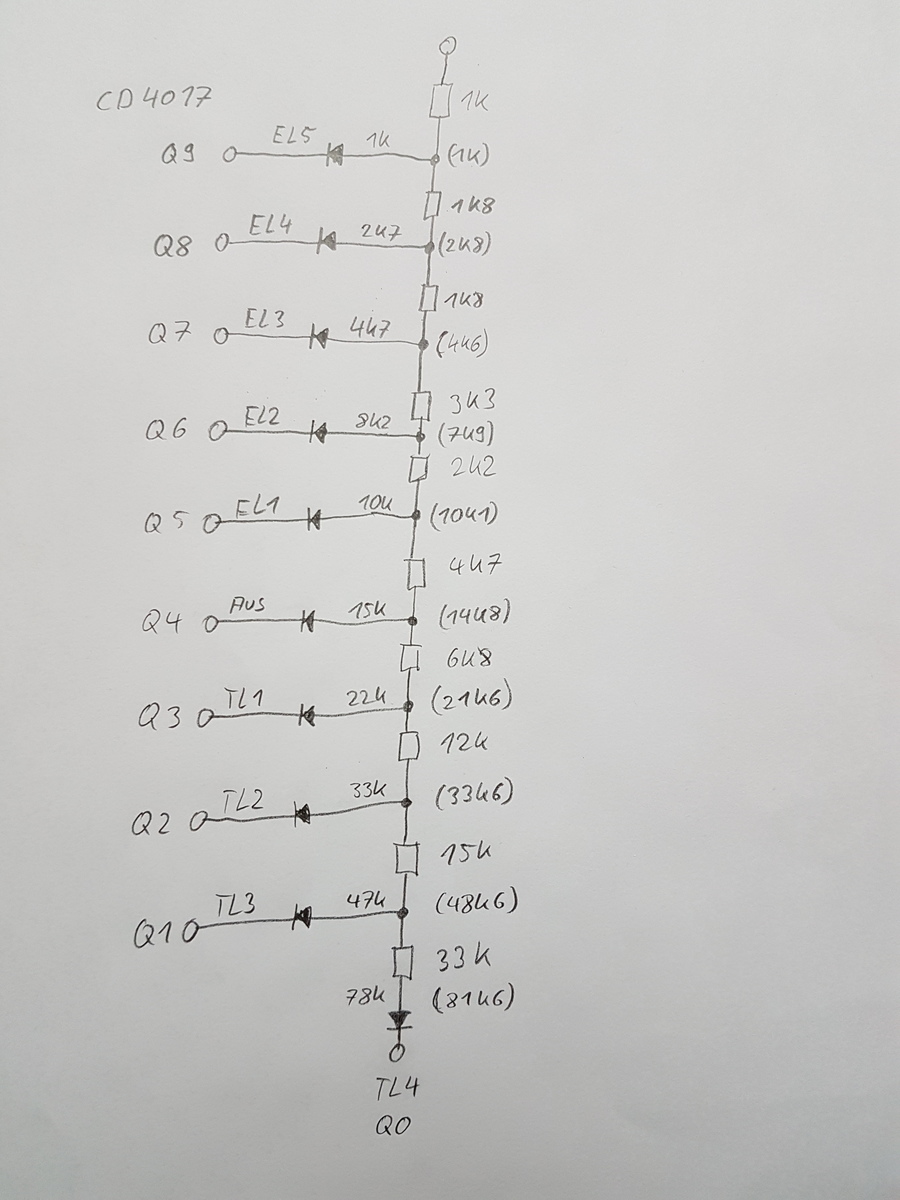 1K
CD4017
Q9 EL5 1K (1K)
1K8
Q8 EL4 2K7 (2K8)
1K8
Q7 EL3 4K7 (4K6)
3K3
Q6 EL2 8K2 (7K9)
2K2
Q5 EL1 10K (10K1)
4K7
Q4 AUS 15K (14K8)
6K8
Q3 TL1 22K (21K6)
12K
Q2 TL2 33K (33K6)
15K
Q1 TL3 47K (48K6)
33K
78K (81K6)
TL4
Q0